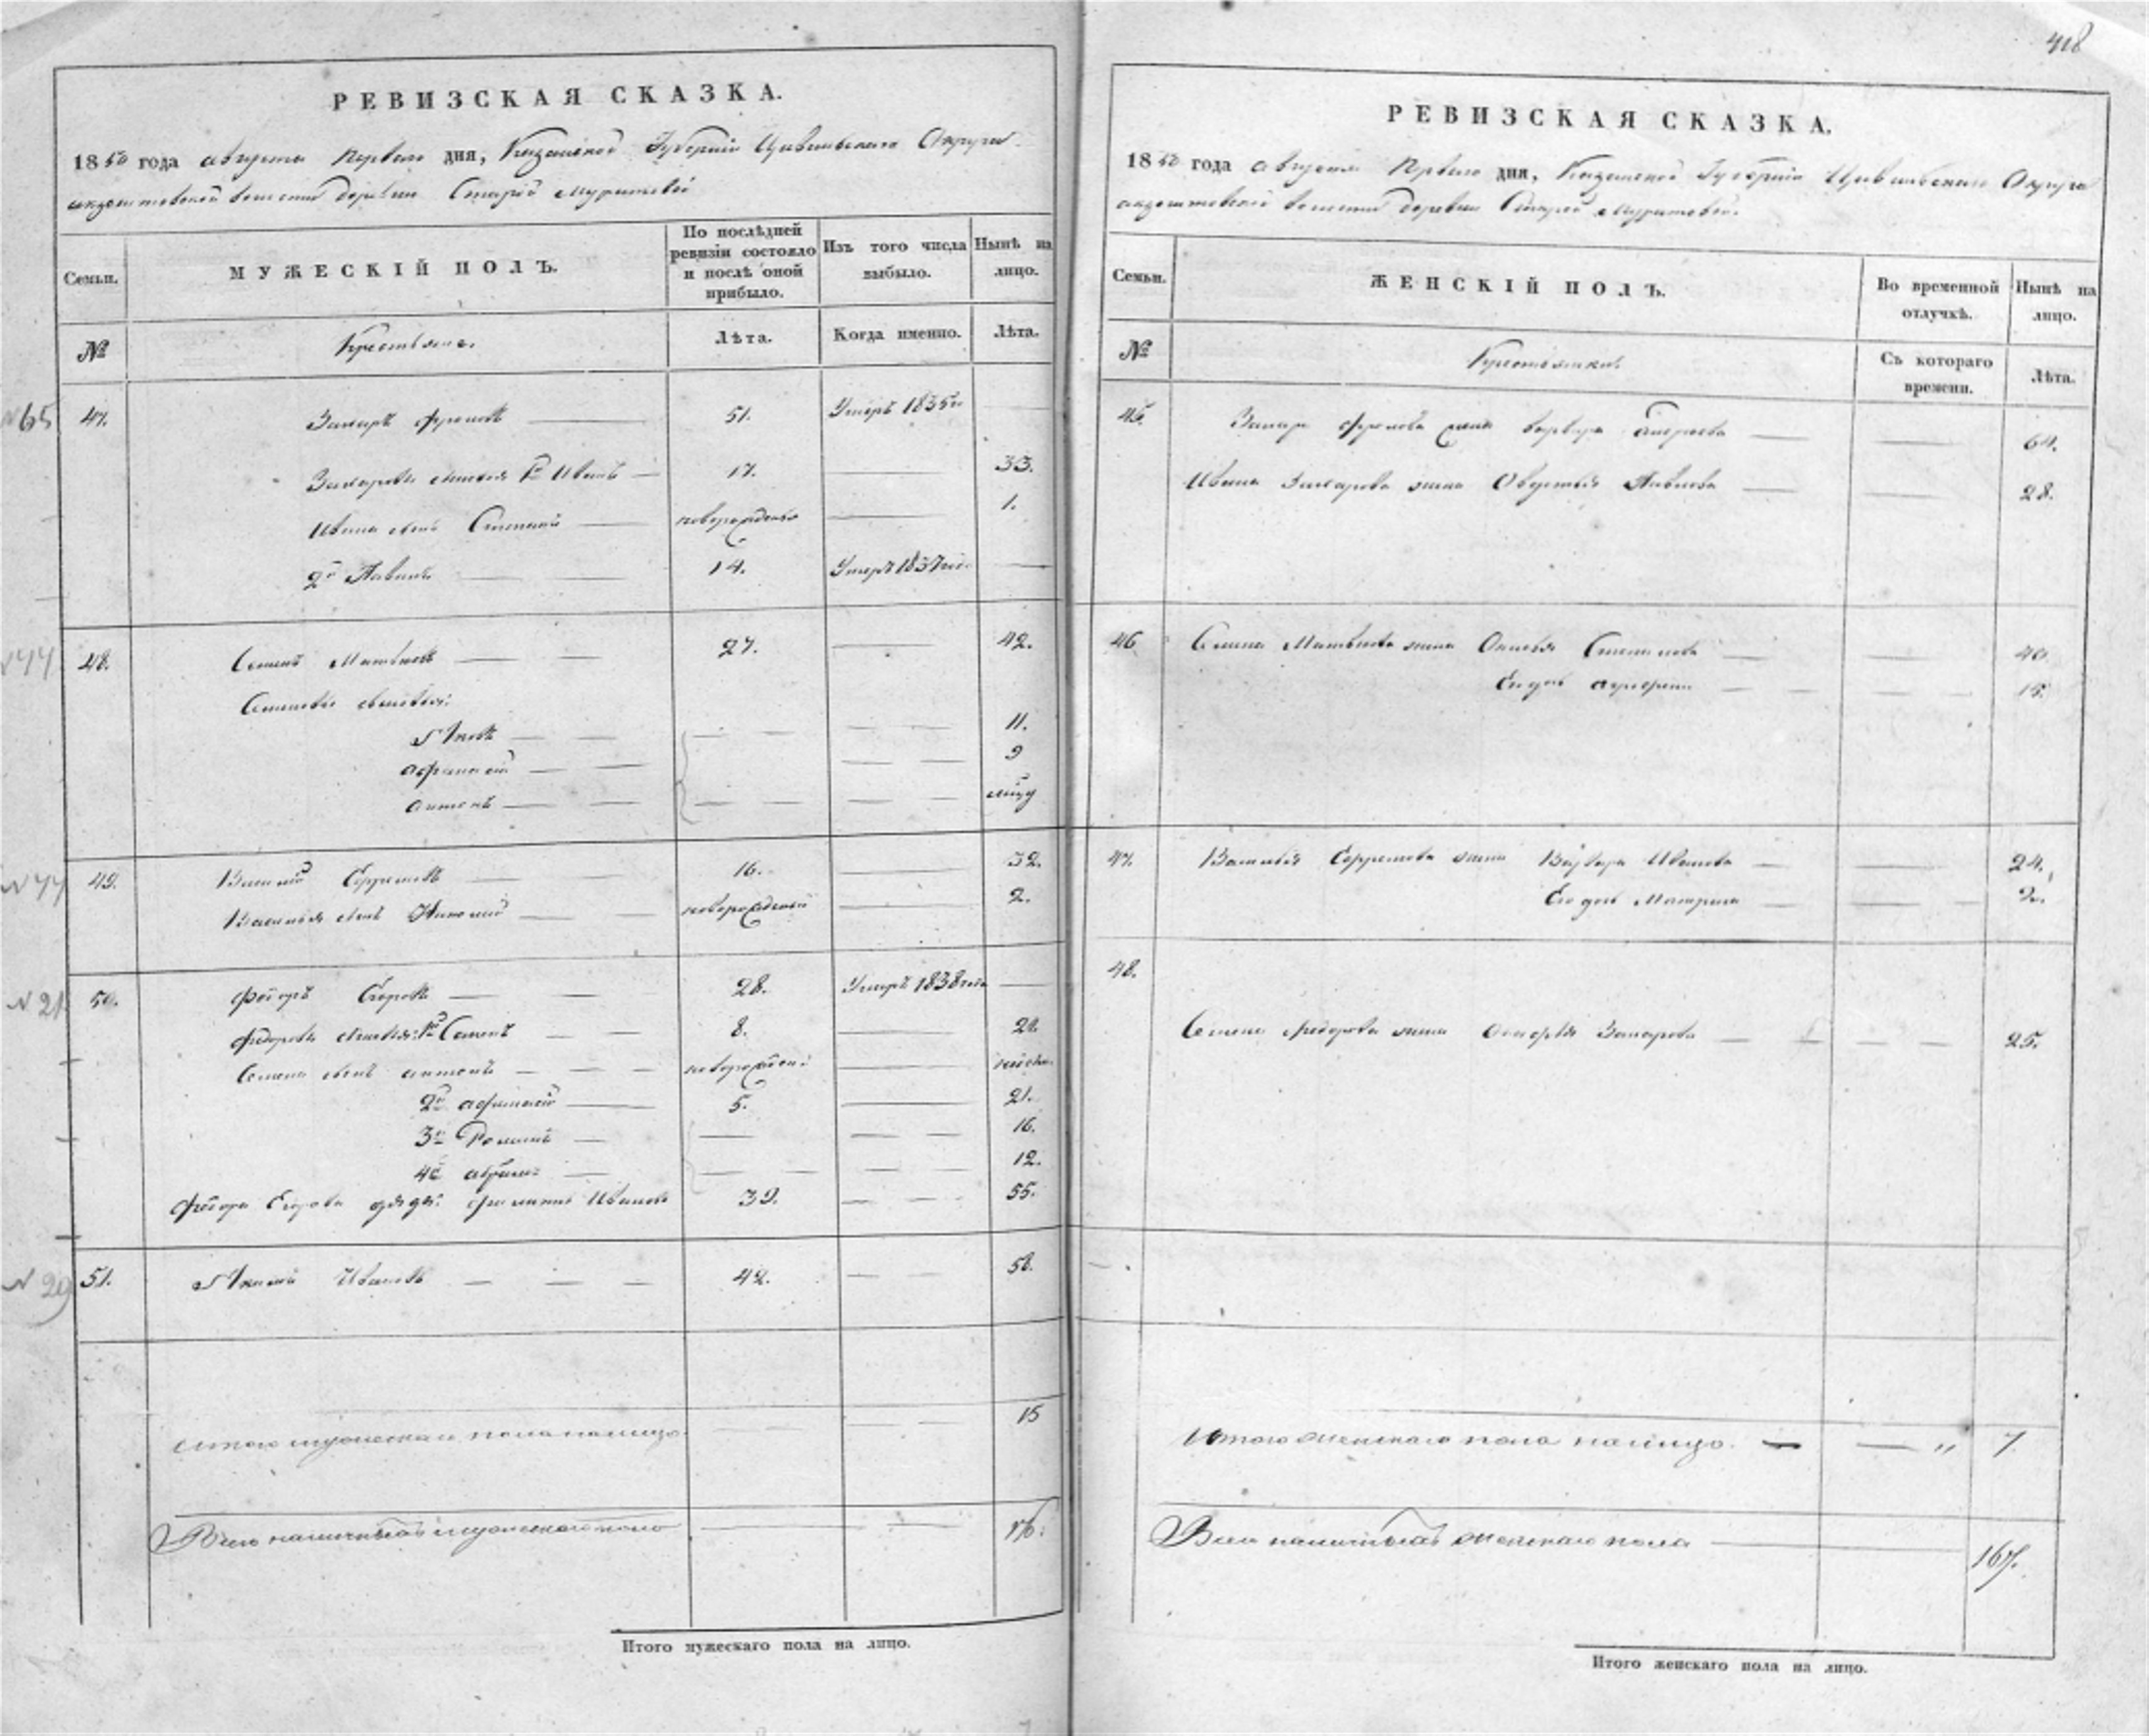 418
РЕВИЗСКАЯ СКАЗКА.
1850 года августа первого дня, Казанской Губернии Цивильского Округа
волости деревни Старой Муратовой
Семьи. МУЖЕСКІЙ ПОЛЪ. По послѣдней ревизіи состояло и послѣ оной прибыло. Изъ того числа выбыло. Нынѣ на лицо.
№ Крестьяне. Лѣта. Когда именно. Лѣта.
N 65 47. Захаръ Фроловъ 51. Умеръ 1835го
Захаровы сыновья 1й Иванъ 17. 33.
Ивана сынъ Степанъ новорожденъ 1.
2й Павелъ 14. Умеръ 1837 год.
N 44 48. Семенъ Матвѣевъ 27. 42.
Семеновы сыновья:
Яковъ 11.
Афанасій 9
Антонъ
N 44 49. Василій Ефремовъ 16. 32.
Василья сынъ Николай новорожденный 2.
N 21 50. Федоръ Егоровъ 28. Умеръ 1838 года
Федоровы сыновья: 1й Семенъ 8. 24.
Семена сынъ Антонъ новорожден:
2й Афанасій 5. 21.
3й Романъ 16.
4й Абрамъ 12.
Федора Егорова дядя: Иванов 39. 55.
N 29 51. Иванов 42. 58.
Итого мужескаго пола налицо. 15
Всего наличныхъ мужескаго пола 176.
Итого мужескаго пола на лицо.
РЕВИЗСКАЯ СКАЗКА.
1850 года августа первого дня, Казанской Губерніи Цивильского Округа
волости деревни Старой Муратовой.
Семьи. ЖЕНСКІЙ ПОЛЪ. Во временной отлучкѣ. Нынѣ на лицо.
№ Крестьянки Съ котораго времени. Лѣта.
45. Захара Фролова жена Варвара Андреева 64.
Ивана Захарова жена Авдотья Павлова 28.
46 Семена Матвѣева жена Степанова 40.
Его дочь Аграфена 15.
47. Василья Ефремова жена Варвара Иванова 24.
Его дочь Матрена 2.
48.
Семена Федорова жена Захарова 25.
Итого женскаго пола налицо. " 7.
Всего наличныхъ женскаго пола 167.
Итого женскаго пола на лицо.